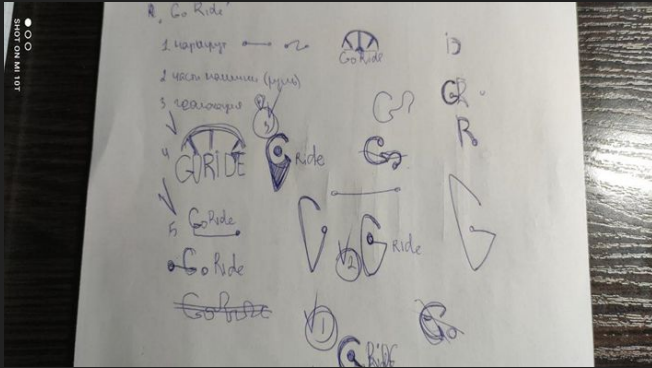 SHOT ON MI 10T
Go Ride
1 маршрут
GoRide
2 части машины (руль)
3 геолокация
3
GR
R
4
GORIDE
G Ride
5 GoRide
GoRide
2
G Ride
GoRide
1
G RiDE
Go